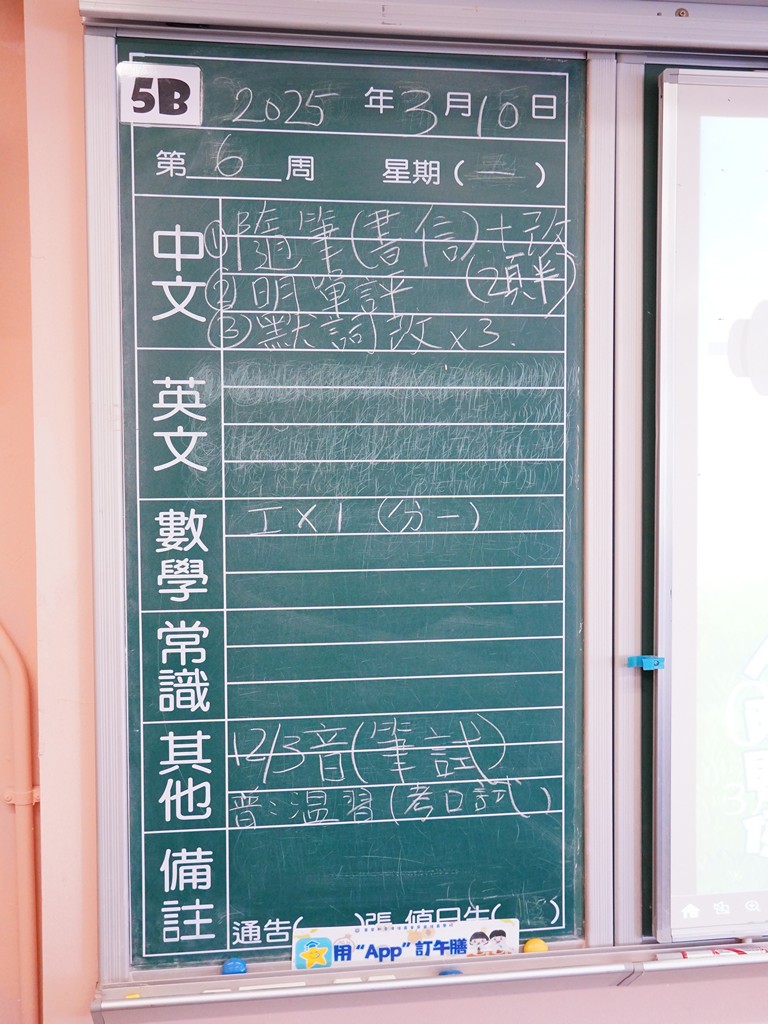 5B 2025 年 3 月 10 日
第 6 周 星期 (一)
中文
① 隨筆(書信)+改
(2頁半)
② 明單評
③ 默詞改 x 3.
英文
數學
工 X 1 (分一)
常識
其他
12/3音(筆試)
普:溫習(考口試)
備註
通告( )張
用“App”訂午膳